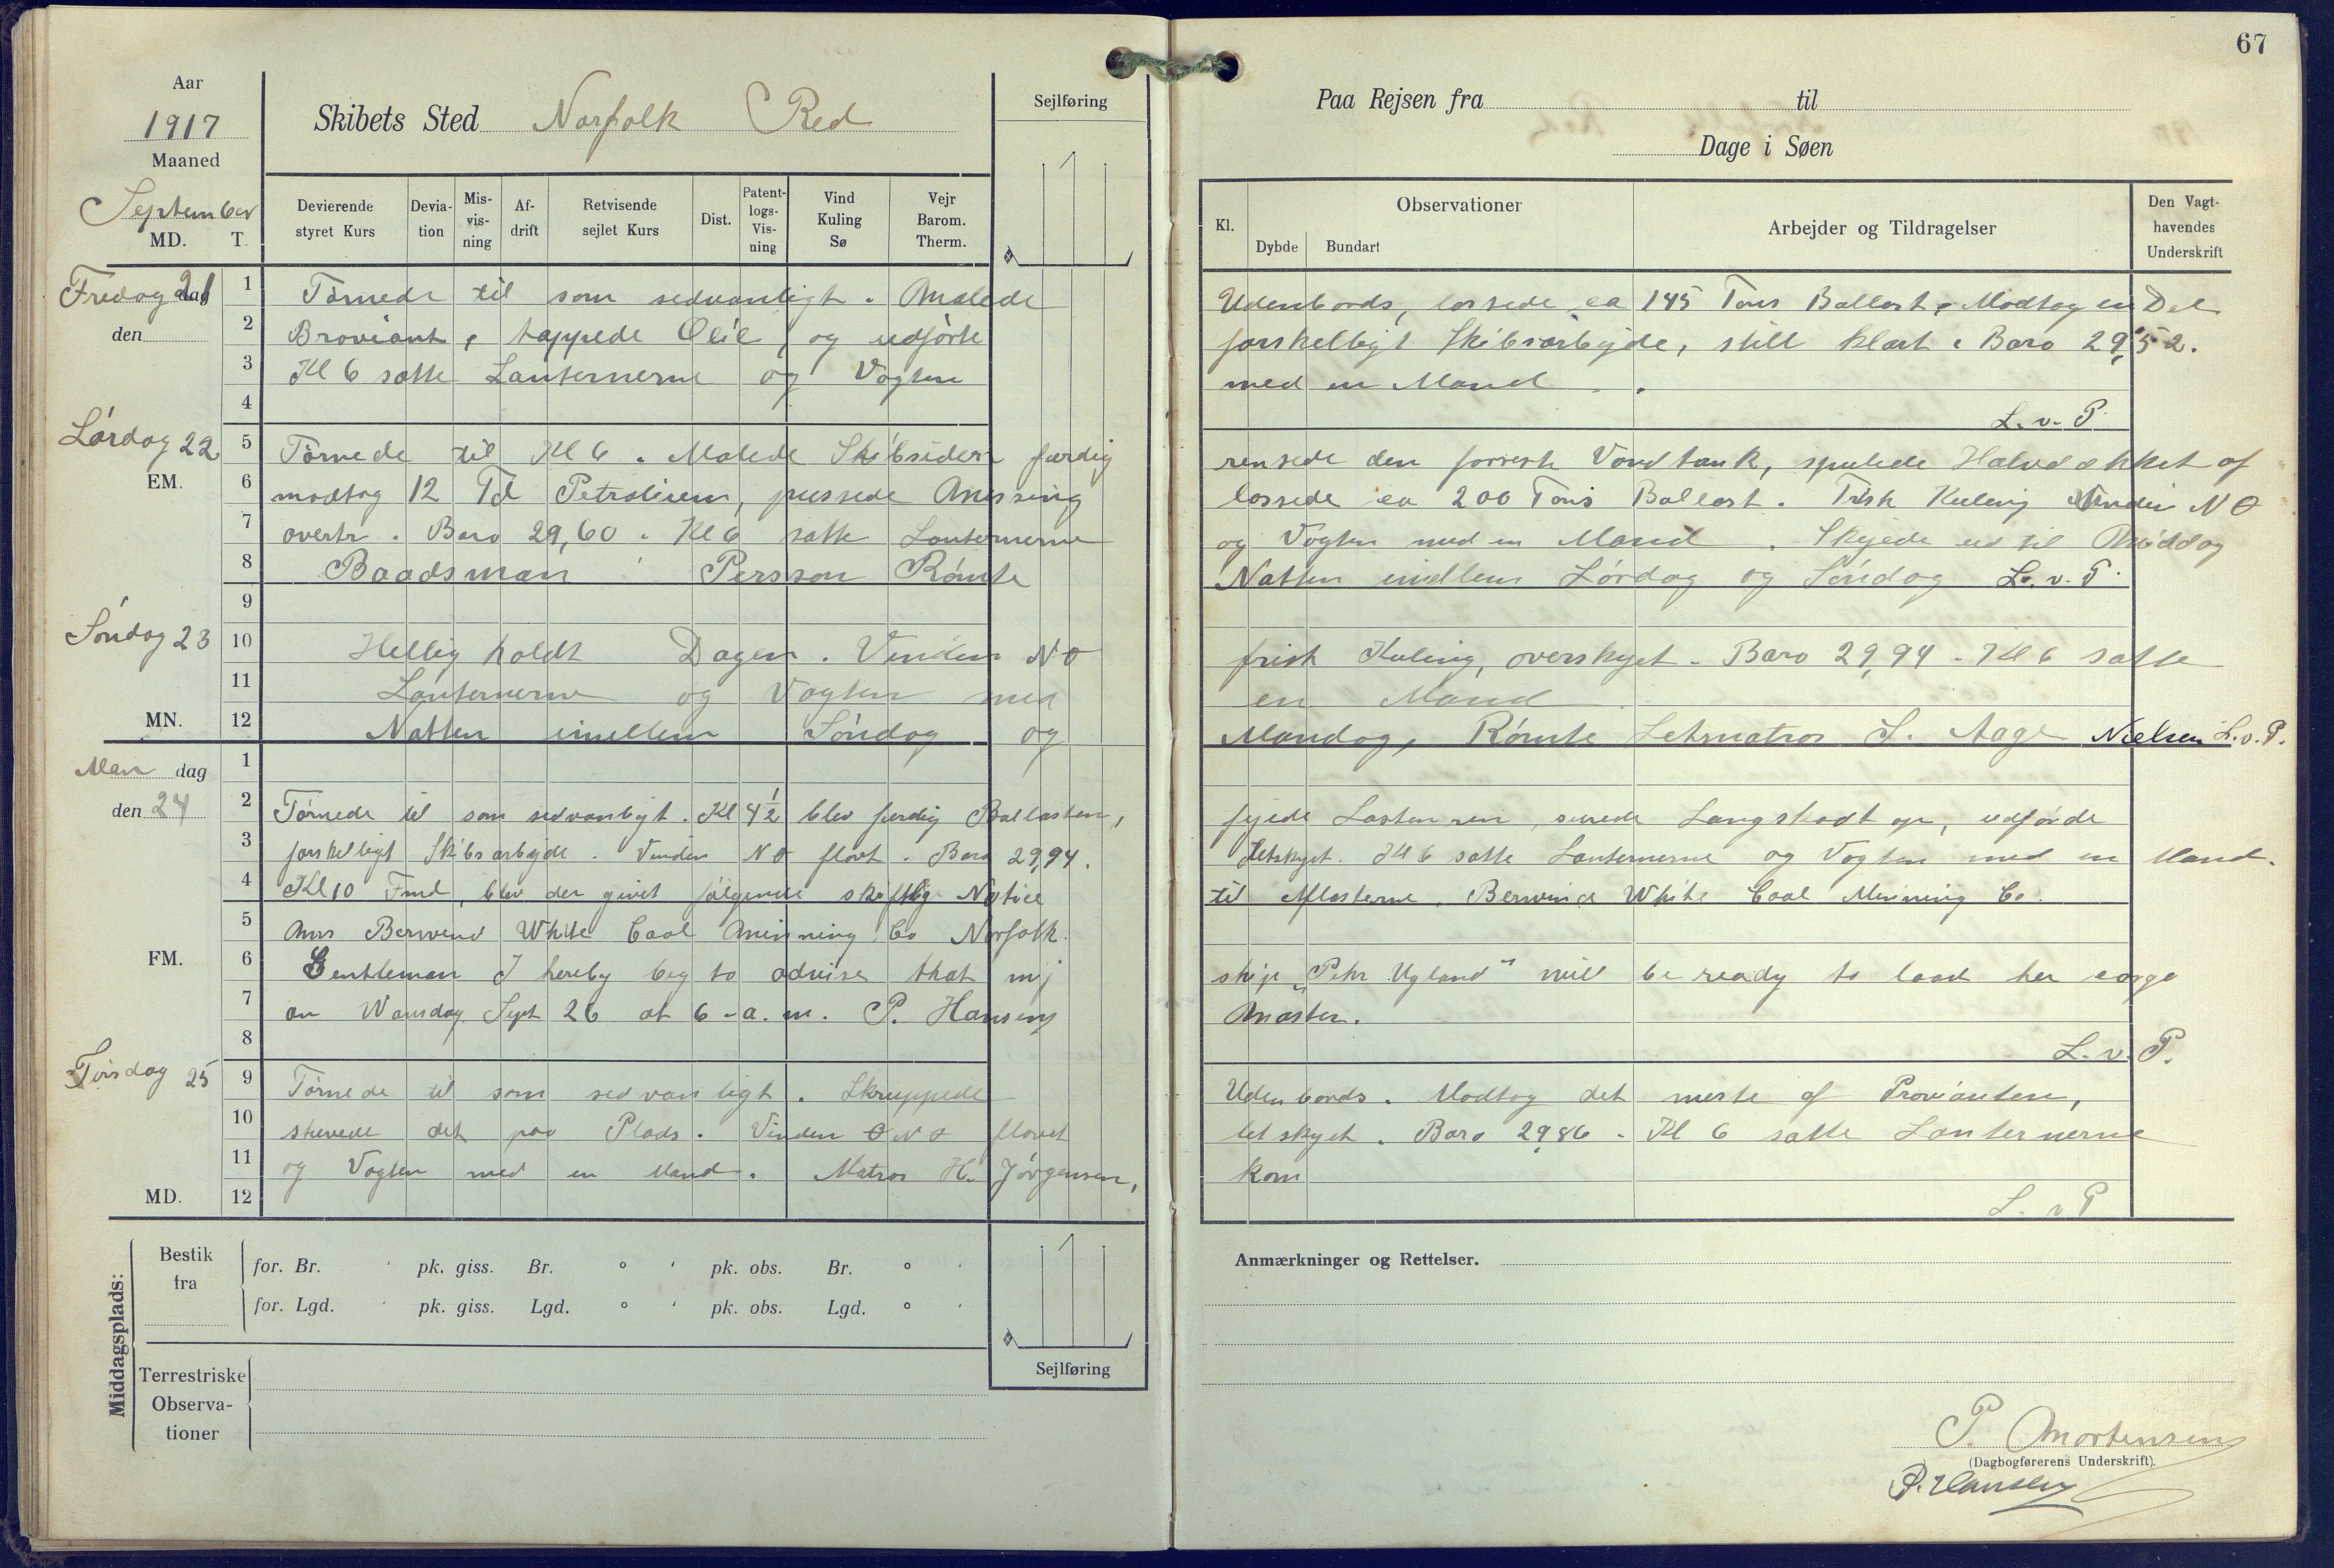 67
Aar
1917
Maaned
September
MD. T.
Skibets Sted Norfolk Red
Sejlføring
Devierende styret Kurs
Devia-tion
Mis-vis-ning
Af-drift
Retvisende sejlet Kurs
Dist.
Patent-logs-Vis-ning
Vind Kuling Sø
Vejr Barom. Therm.
Paa Rejsen fra til
Dage i Søen
Kl.
Observationer
Dybde
Bundart
Arbejder og Tildragelser
Den Vagt-havendes Underskrift
Fredag 21 dag
den
1 Tørnede til som sedvanligt. Malede Udenbords, lossede ca 145 Tons Ballast, Modtog en Del
2 Broviant, tappede Olie, og udførte forskelligt Skibsarbejde, stilt klart. Baro 29,52.
3 Kl 6 satte Lanternerne og Vagten med en Mand.
4 L. v. P.
Lørdag 22
5 Tørnede til Kl 6. Malede Skibsiden færdig rensede den forreste Vandtank, spulede Halvdækket af
EM.
6 modtog 12 Td Petrolium, pussede Messing lossede ca 200 Tons Ballast. Frisk Kuling Vinden NO
7 overtr. Baro 29,60. Kl 6 satte Lanternerne og Vagten med en Mand. Skejede ud til Middag
8 Baadsman Persson Rømte Natten imellem Lørdag og Søndag L. v. P.
9
Søndag 23
10 Hellig holdt Dagen. Vinden NO frisk Kuling, overskyet. Baro 29,94. Kl 6 satte
11 Lanternerne og Vagten med en Mand.
MN.
12 Natten imellem Søndag og Mandag, Rømte Letmatros S. Aage Nielsen L. v. P.
Man dag
1
den 24
2 Tørnede til som sedvanligt. Kl 4 1/2 blev færdig Ballasten, fejede Lasten ren, surede Langskodt op, udførde
3 forskelligt Skibsarbejde. Vinden NO flovt. Baro 29,94. Letskyet. Kl 6 satte Lanternerne og Vagten med en Mand.
4 Kl 10 Fmd, blev der givet følgende skriftlige Notice til Aflasterne, Berwind White Coal Minning Co.
5 Mrs Berwend White Coal Minning Co Norfolk.
FM.
6 Gentleman I hereby beg to advise that mj skip „Peter Ugland" will be ready to load her cargo
7 on Wansdag Sept 26 at 6 - a. m. P. Hansen Master.
8 L. v. P.
Tirsdag 25
9 Tørnede til som sedvanligt. Skruppede Udenbords. Modtog det meste af Provianten,
10 stuvede det paa Plads. Vinden O NO flovet letskyet. Baro 29,86. Kl 6 satte Lanternerne
11 og Vagten med en Mand. Matros H. Jørgensen, kom
MD.
12 L. v P
Middagsplads:
Bestik fra
for. Br. ' pk. giss. Br. ° ' pk. obs. Br. ° '
for. Lgd. ' pk. giss. Lgd. ° ' pk. obs. Lgd. ° '
Sejlføring
Terrestriske Observa-tioner
Anmærkninger og Rettelser.
P. Mortensen
(Dagbogførerens Underskrift).
P. Hansen